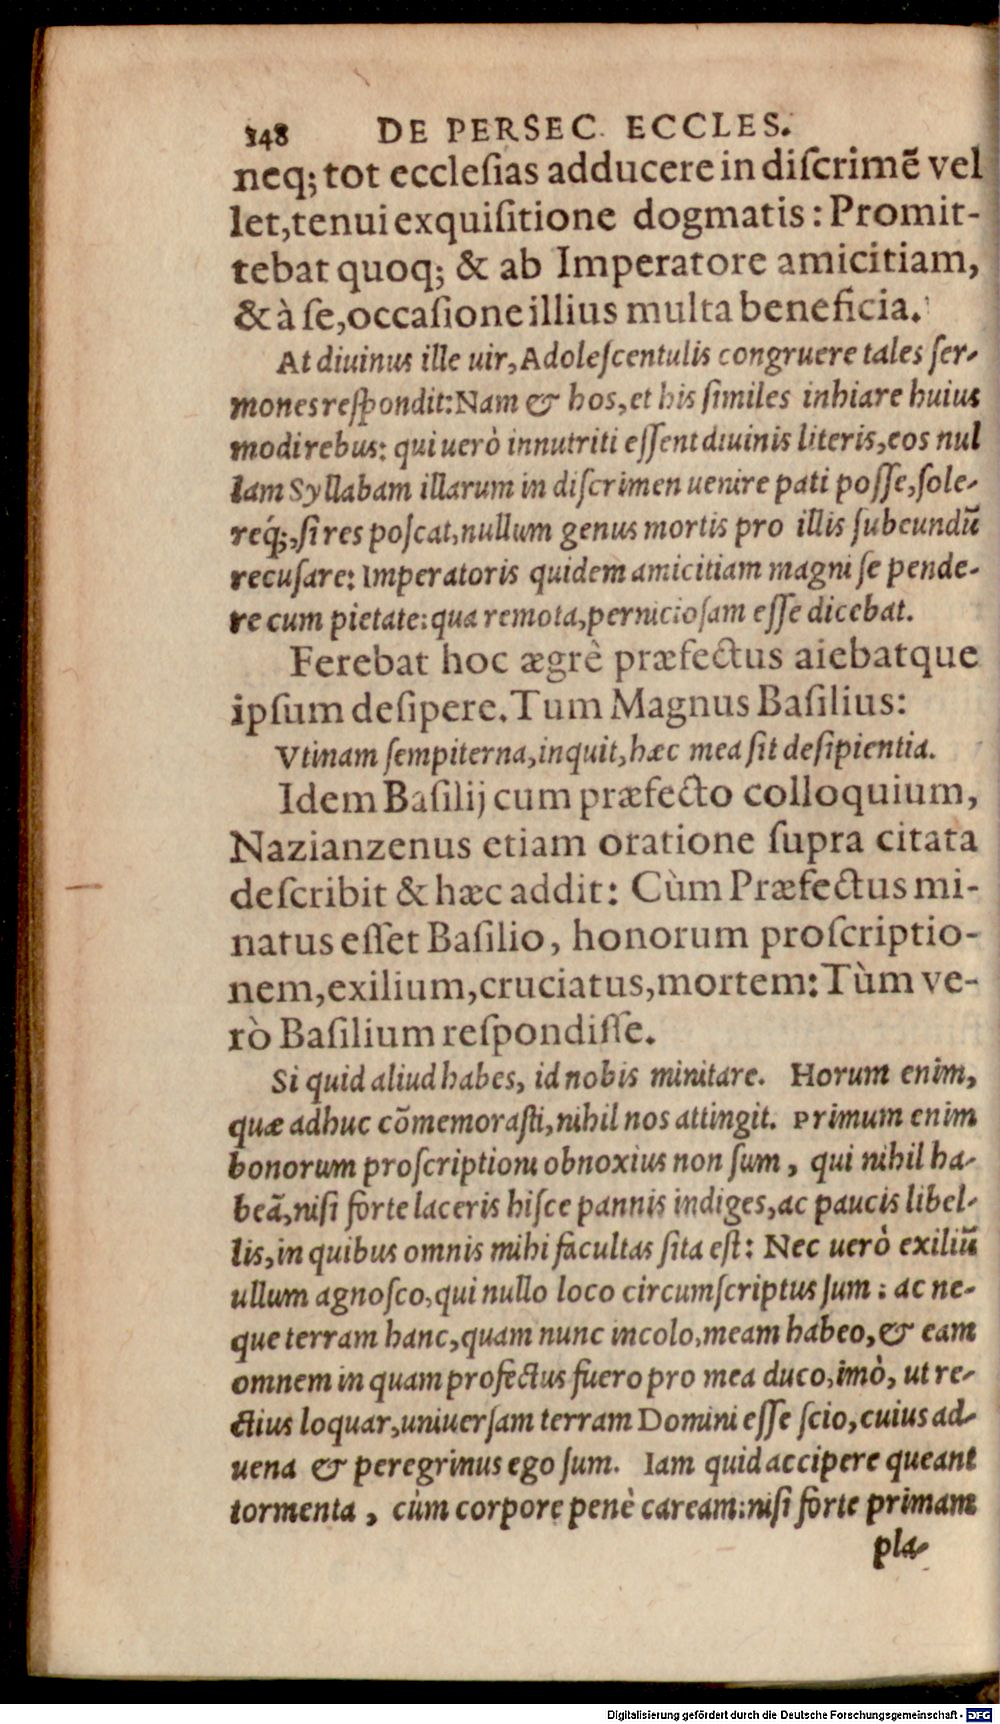 248 DE PERSEC. ECCLES.
neq; tot ecclesias adducere in discrimẽ vel
let, tenui exquisitione dogmatis: Promit-
tebat quoq; & ab Imperatore amicitiam,
& à se, occasione illius multa beneficia.
At diuinus ille uir, Adolescentulis congruere tales ser-
mones respondit: Nam & hos, et his similes inhiare huius
modi rebus: qui uerò innutriti essent diuinis literis, eos nul
lam Syllabam illarum in discrimen uenire pati posse, sole-
req́;, si res poscat, nullum genus mortis pro illis subeundũ
recusare: Imperatoris quidem amicitiam magni se pende-
re cum pietate: qua remota, perniciosam esse dicebat.
Ferebat hoc ægrè præfectus aiebatque
ipsum desipere. Tum Magnus Basilius:
Vtinam sempiterna, inquit, hæc mea sit desipientia.
Idem Basilij cum præfecto colloquium,
Nazianzenus etiam oratione supra citata
describit & hæc addit: Cùm Præfectus mi-
natus esset Basilio, honorum proscriptio-
nem, exilium, cruciatus, mortem: Tùm ve-
rò Basilium respondisse.
Si quid aliud habes, id nobis minitare. Horum enim,
quæ adhuc cõmemorasti, nihil nos attingit. Primum enim
bonorum proscriptioni obnoxius non sum, qui nihil ha-
beã, nisi forte laceris hisce pannis indiges, ac paucis libel-
lis, in quibus omnis mihi facultas sita est: Nec uerò exiliũ
ullum agnosco, qui nullo loco circumscriptus sum: ac ne-
que terram hanc, quam nunc incolo, meam habeo, & eam
omnem in quam profectus fuero pro mea duco, imò, ut re-
ctius loquar, uniuersam terram Domini esse scio, cuius ad-
uena & peregrinus ego sum. Iam quid accipere queant
tormenta, cùm corpore penè caream: nisi forte primam
pla-
Digitalisierung gefördert durch die Deutsche Forschungsgemeinschaft - DFG